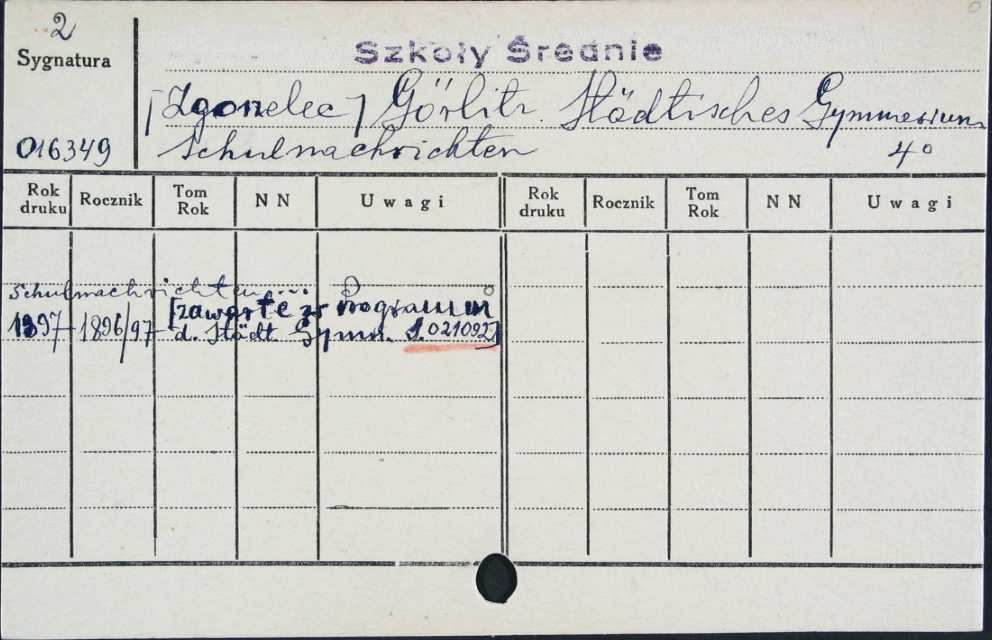 2
Sygnatura
Szkoły Średnie
[Zgorzelec] Görlitz. Städtisches Gymnasium
016349
Schulnachrichten 4°
Rok druku Rocznik Tom Rok N N Uwagi Rok druku Rocznik Tom Rok N N Uwagi
Schulnachrichten...
[zawarte w Programm
1897 1896/97 d. Städt. Gymn. S. 021092]